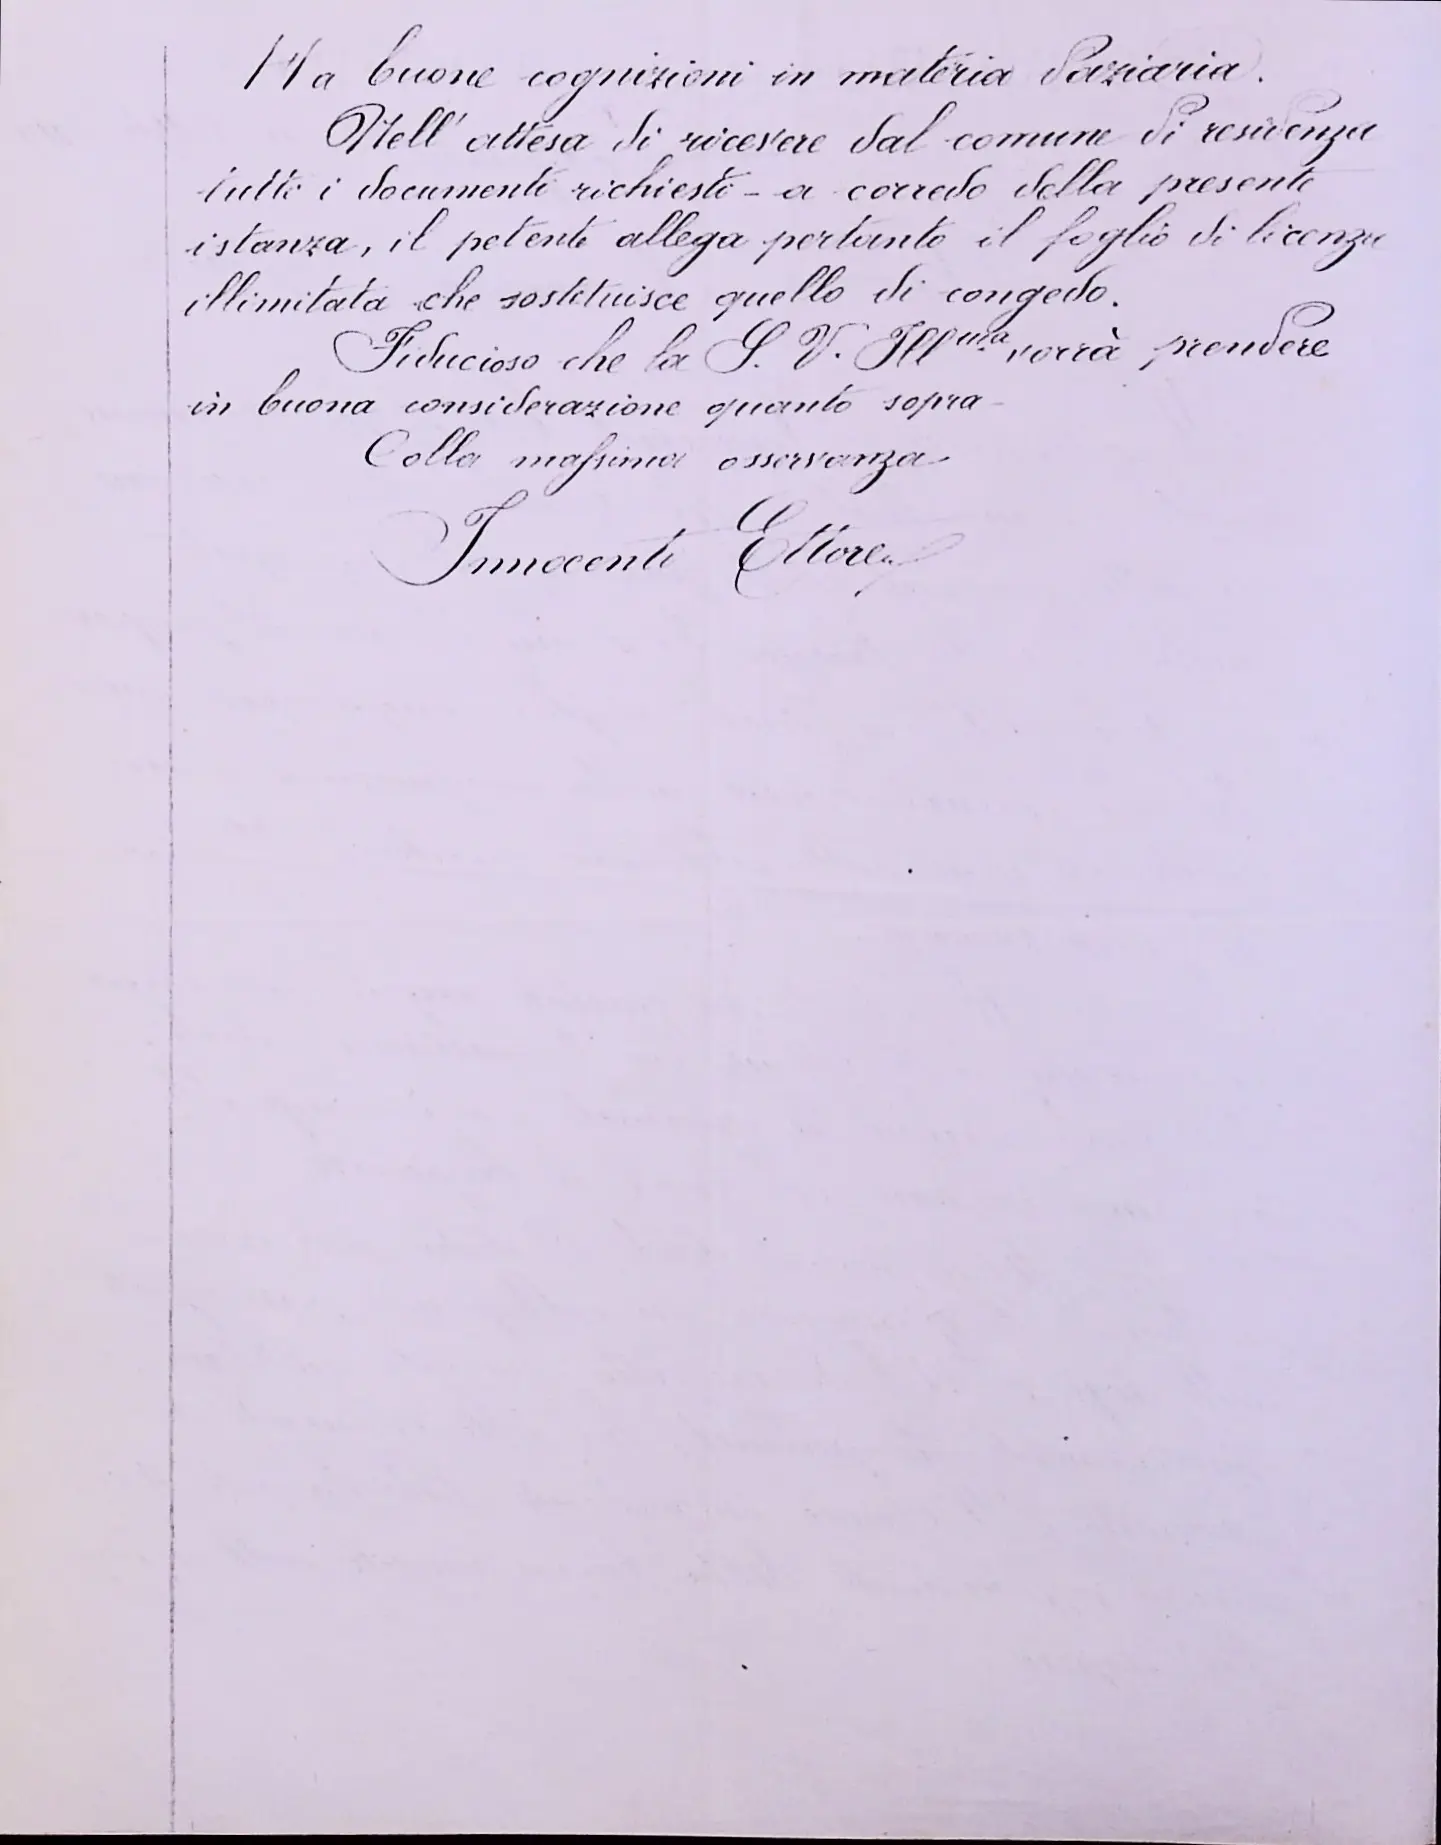 Ha buone cognizioni in materia daziaria.
Nell'attesa di ricevere dal comune di residenza
tutti i documenti richiesti - a corredo della presente
istanza, il petente allega pertanto il foglio di licenza
illimitata che sostituisce quello di congedo.
Fiducioso che la S. V. Ill.ma vorrà prendere
in buona considerazione quanto sopra -
Colla massima osservanza
Innocenti Ettore